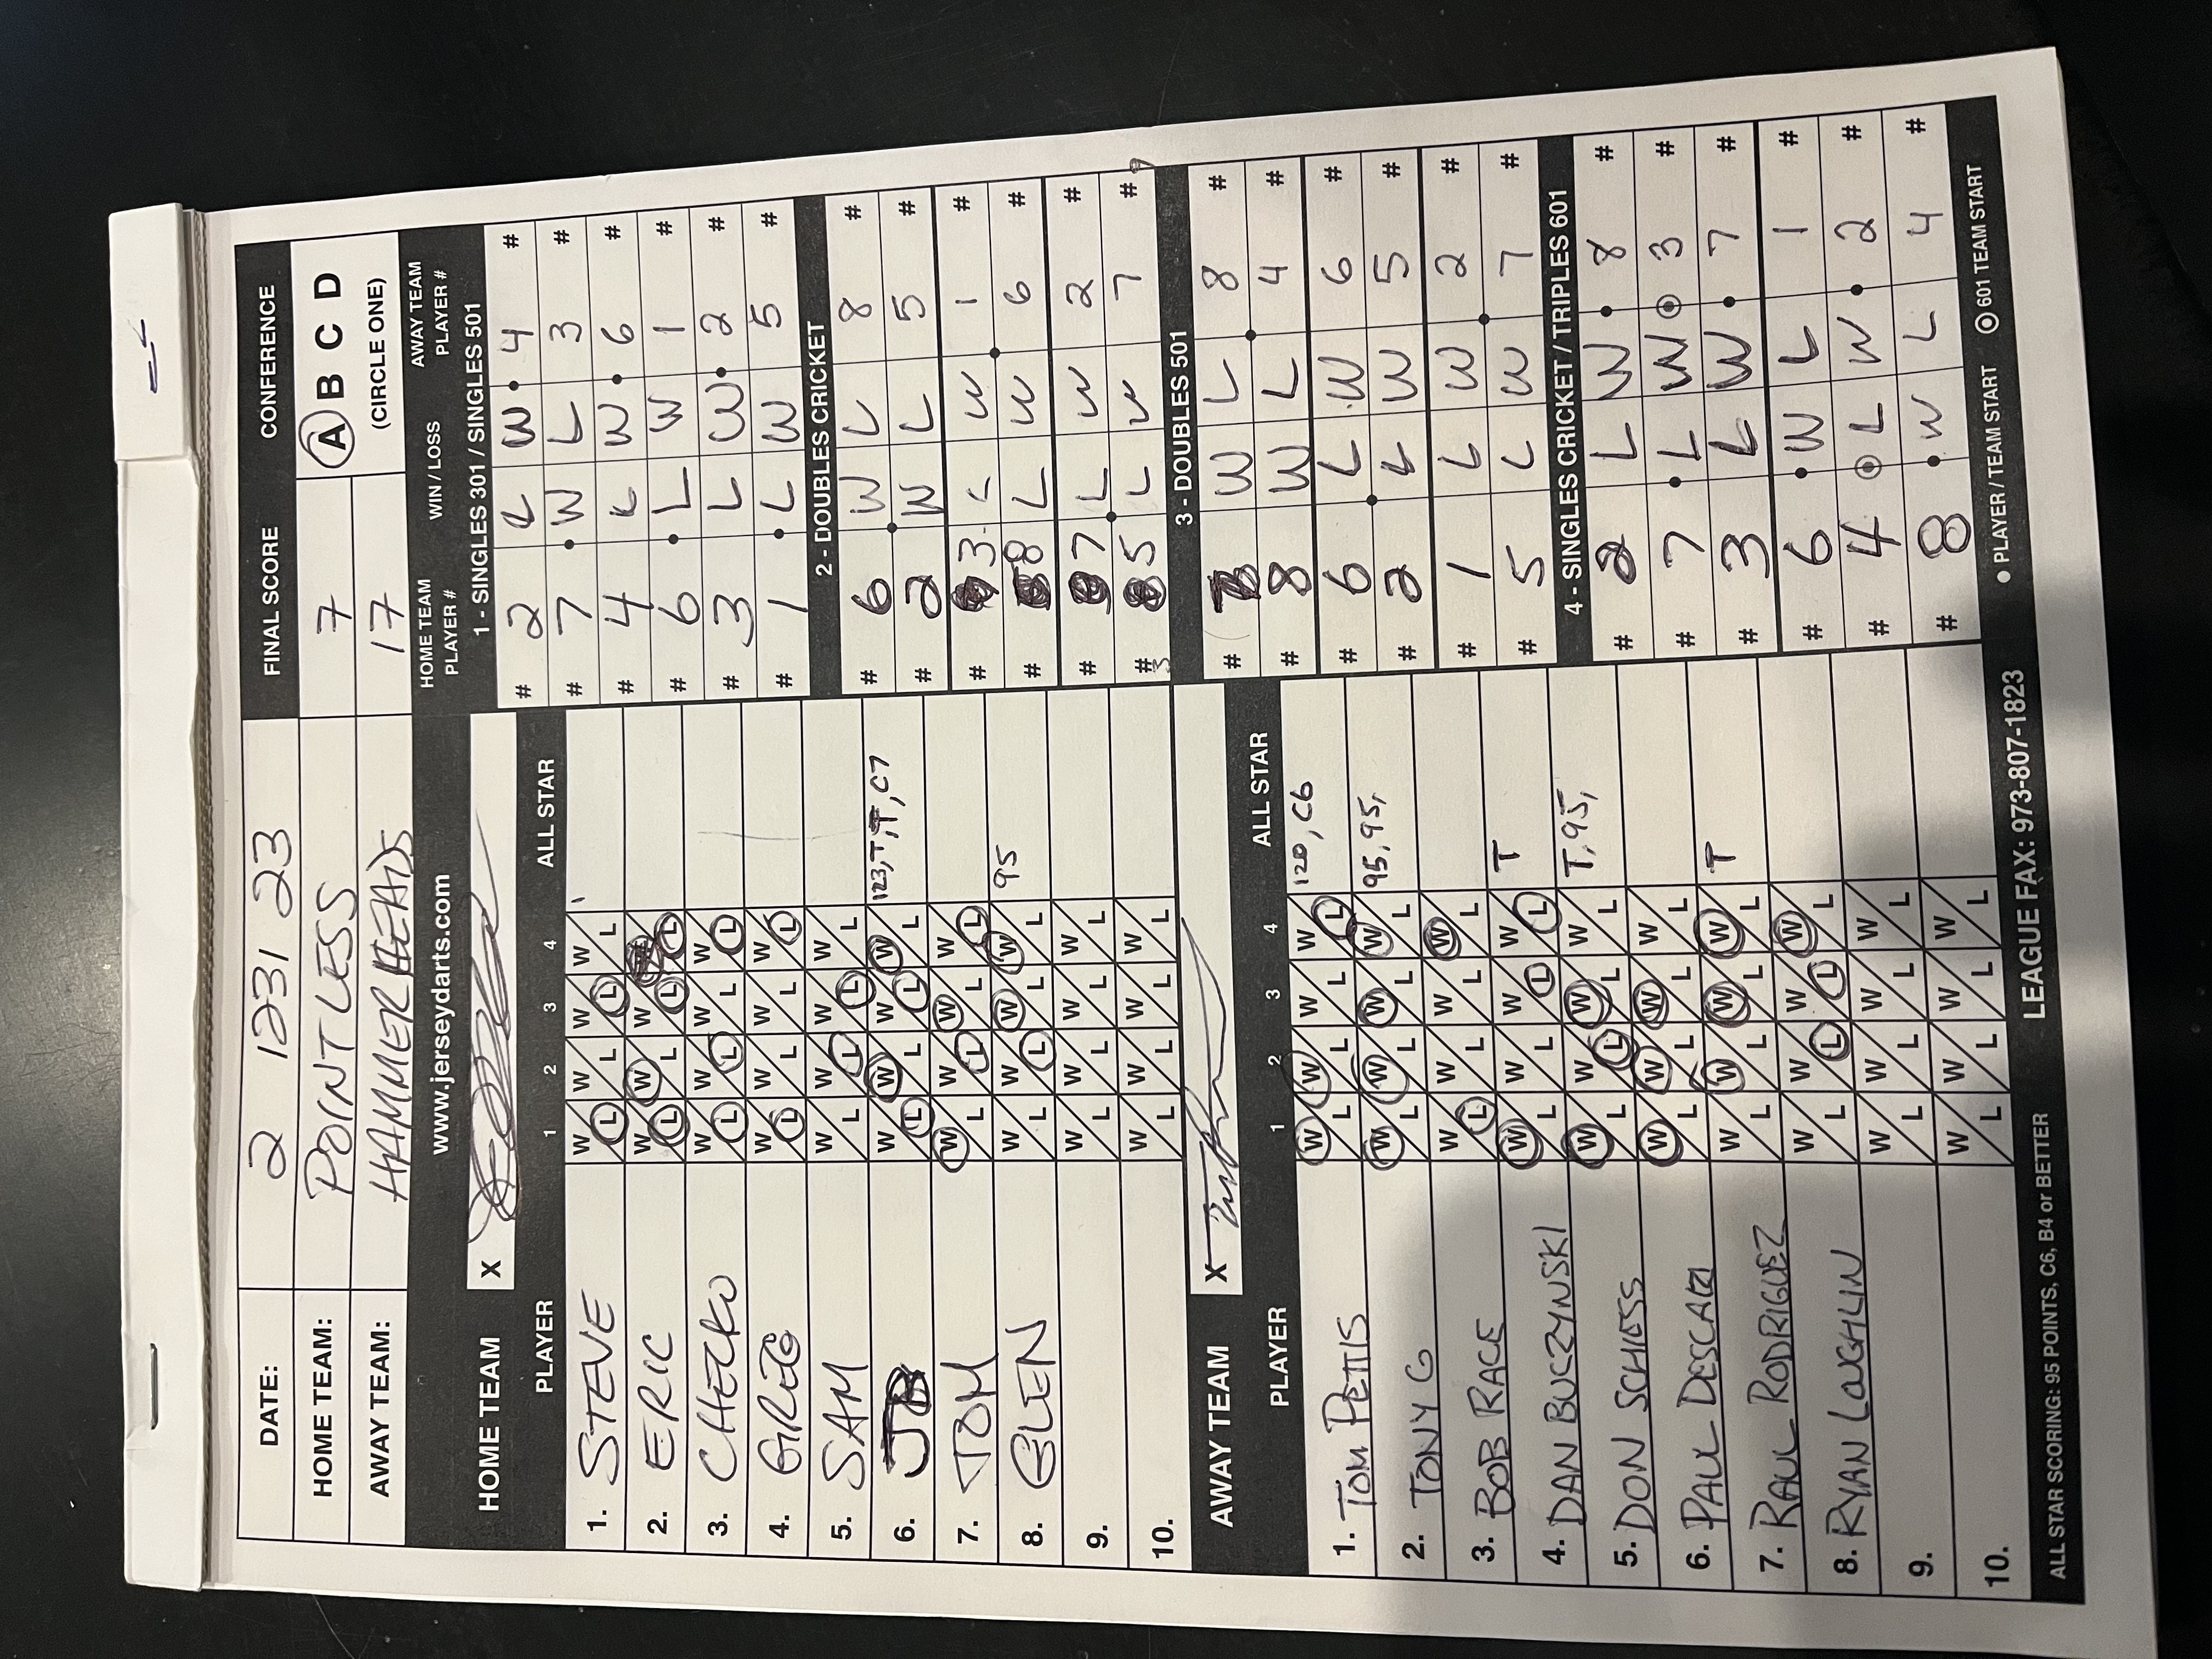 DATE: 2 1231 23 FINAL SCORE CONFERENCE
HOME TEAM: POINTLESS 7 A B C D
AWAY TEAM: HAMMERHEADS 17 (CIRCLE ONE)
www.jerseydarts.com
HOME TEAM X
PLAYER 1 2 3 4 ALL STAR
1. STEVE W L W L W L W L
2. ERIC W L W L W L L
3. CHECKO W L W L W L W L
4. GREG W L W L W L W L
5. SAM W L W L W L W L
6. JB W L W L W L W L 123, T, T, C7
7. TOM W L W L W L W L
8. GLEN W L W L W L W L 95
9. W L W L W L W L
10. W L W L W L W L
AWAY TEAM X
PLAYER 1 2 3 4 ALL STAR
1. TOM PETTIS W L W L W L W L 120, C6
2. TONY G W L W L W L W L 95, 95,
3. BOB RACE W L W L W L W L
4. DAN BUCZYNSKI W L W L W L W L T
5. DON SCHIESS W L W L W L W L T, 95,
6. PAUL W L W L W L W L
7. RAUL RODRIGUEZ W L W L W L W L T
8. RYAN LOUGHLIN W L W L W L W L
9. W L W L W L W L
10. W L W L W L W L
ALL STAR SCORING: 95 POINTS, C6, B4 or BETTER LEAGUE FAX: 973-807-1823
HOME TEAM PLAYER # WIN / LOSS AWAY TEAM PLAYER #
1 - SINGLES 301 / SINGLES 501
# 2 L W 4 #
# 7 W L 3 #
# 4 L W 6 #
# 6 L W 1 #
# 3 L W 2 #
# 1 L W 5 #
2 - DOUBLES CRICKET
# 6 W L 8 #
# 2 W L 5 #
# 3 L W 1 #
# 8 L W 6 #
# 7 L W 2 #
# 5 L W 7 #
3 - DOUBLES 501
# 7 W L 8 #
# 8 W L 4 #
# 6 L W 6 #
# 2 L W 5 #
# 1 L W 2 #
# 5 L W 7 #
4 - SINGLES CRICKET / TRIPLES 601
# 2 L W 8 #
# 7 L W 3 #
# 3 L W 7 #
# 6 W L 1 #
# 4 L W 2 #
# 8 W L 4 #
PLAYER / TEAM START 601 TEAM START